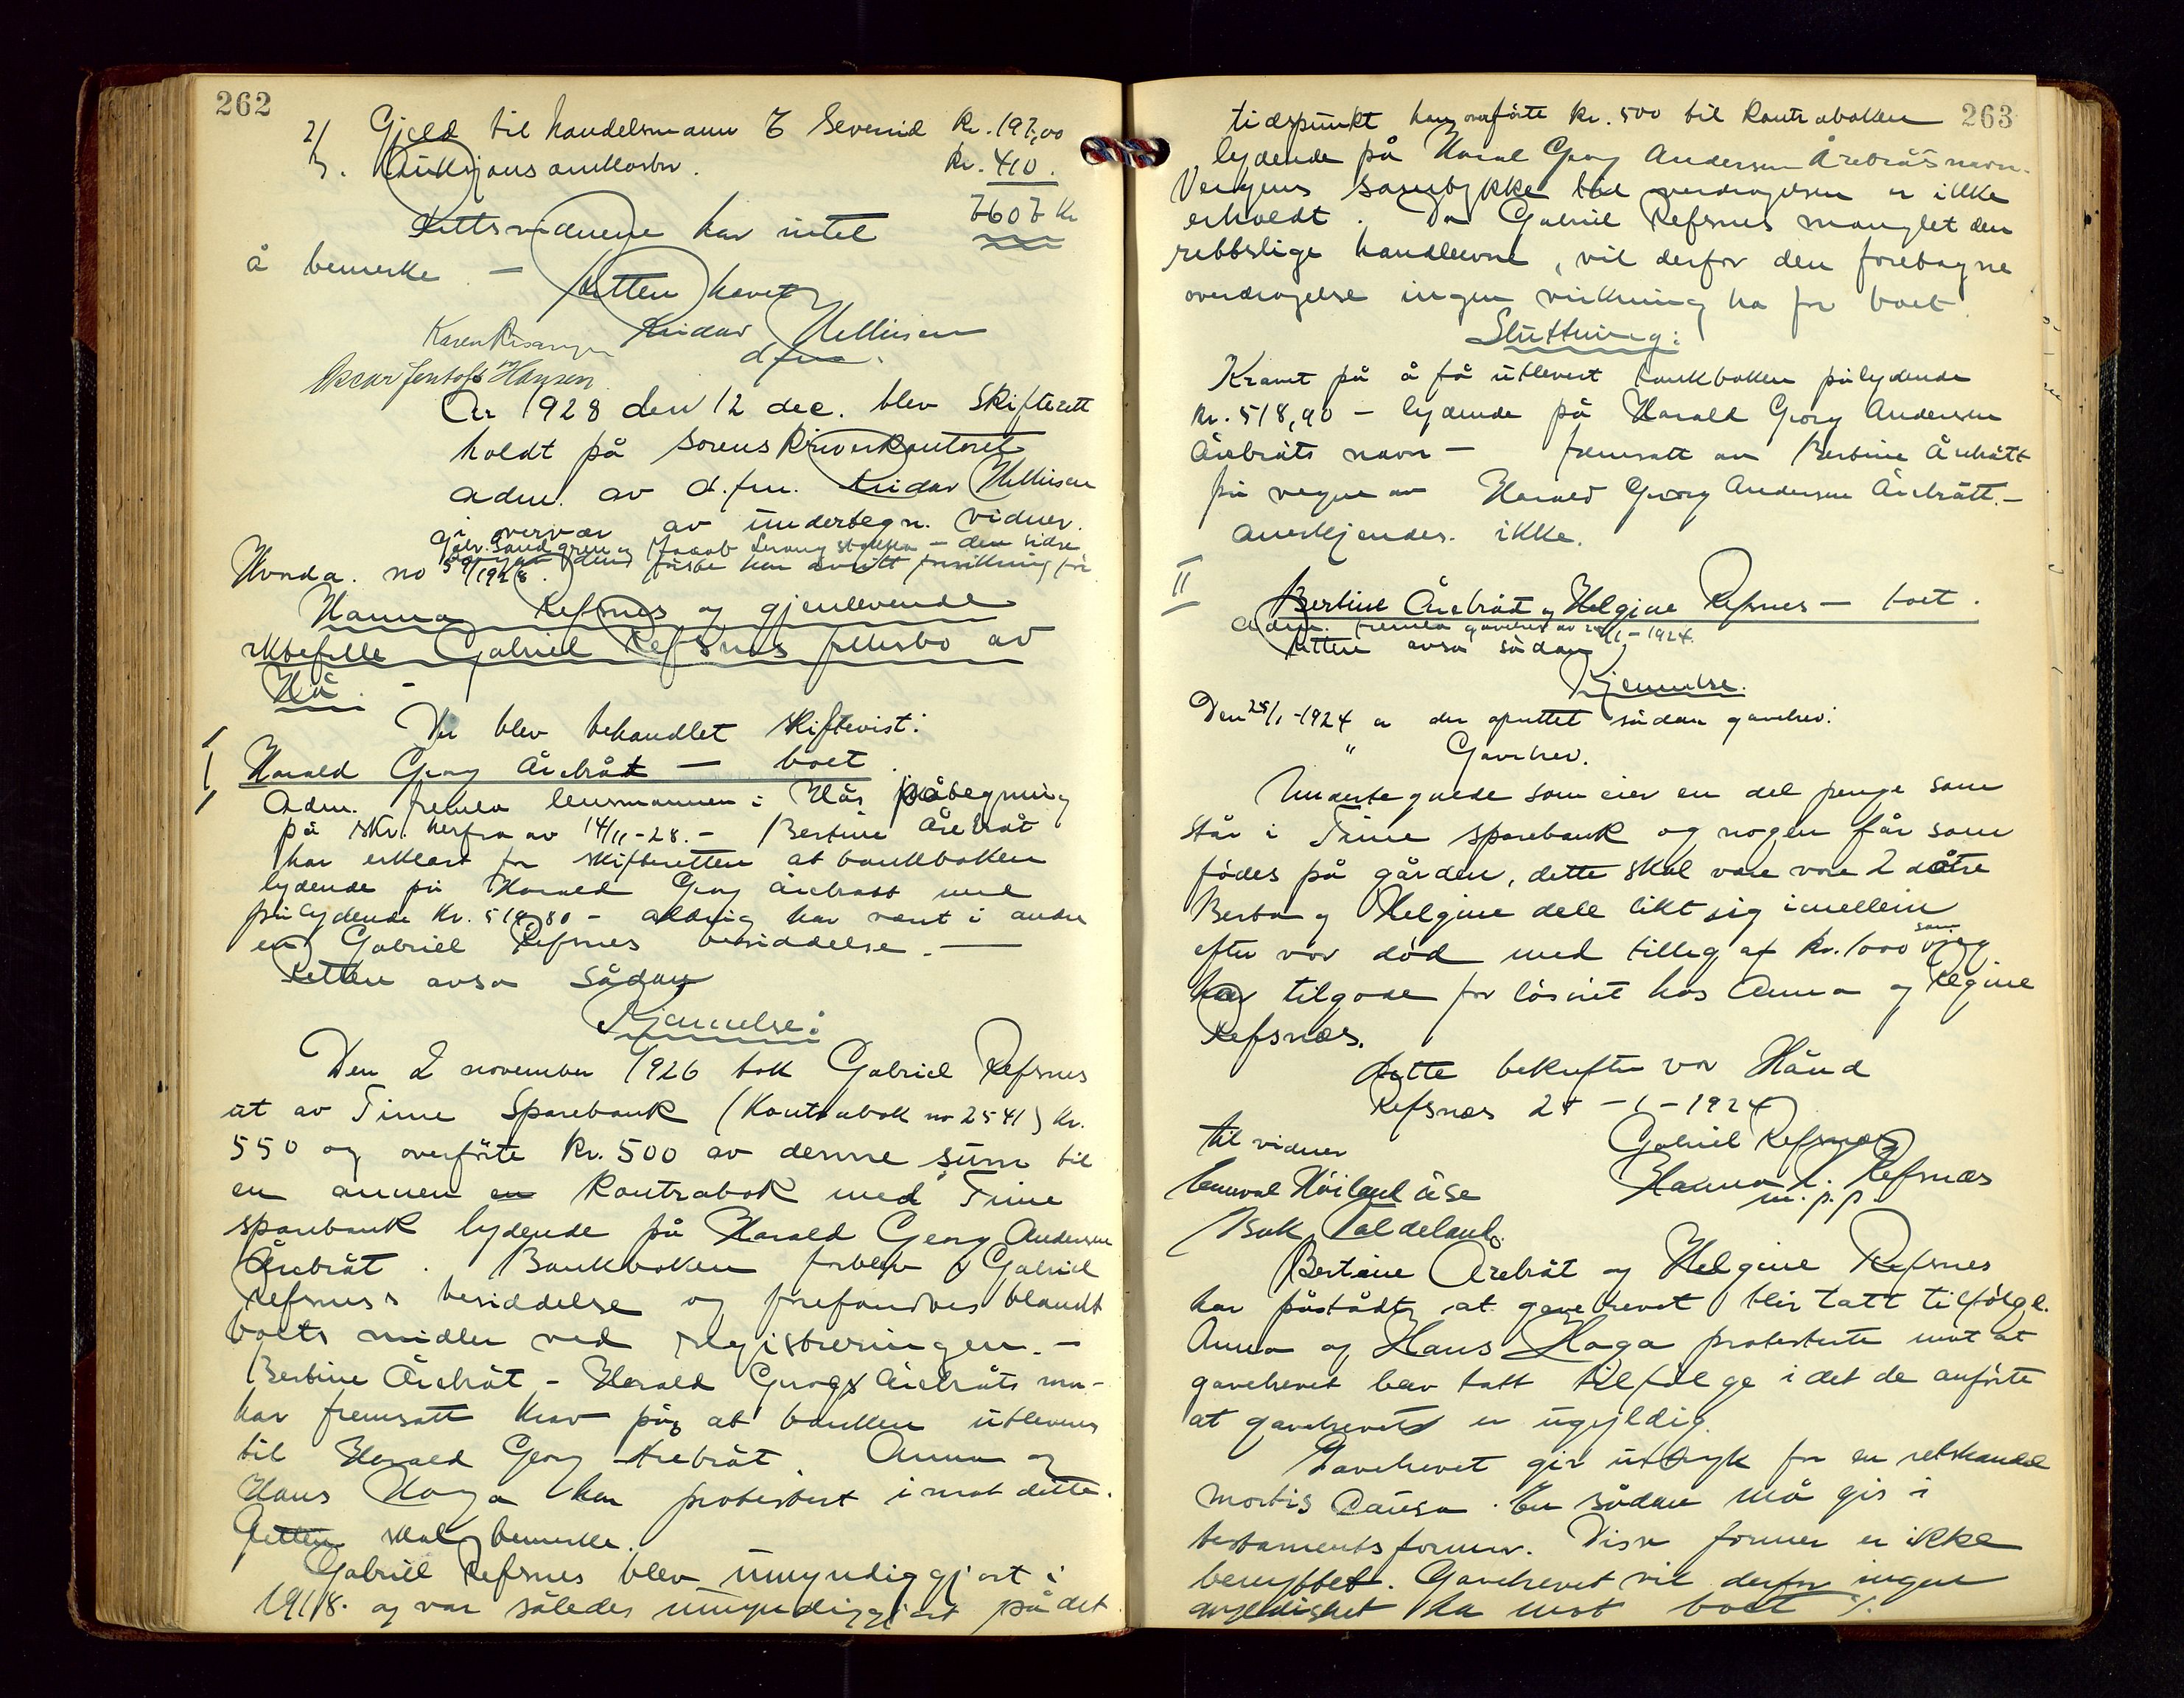 262
2/ Gjeld til handelsmann T Severeid Kr. 197,00
3. Auksjonsomkostn. Kr. 410.
Rettsvidnene har intet 7607 Kr
å bemerke —
Retten hevet
Reidar Mellesen
d.fm.
Oscar Jentoft Hansen
År 1928 den 12 dec. blev Skifterett
holdt på Sorenskriverkontoret
adm. av d.fm. Reidar Mellesen
i overvær av undertegn. vidner.
den sidre
no 59/1928.
Hanna Refsnes og gjenlevende
ektefelle Gabriel Refsnes fellesbo av
Hå. -
Der blev behandlet skiftevist:
I
Harald Georg Årebråt — boet.
Adm. fremla lensmannen i Hås påtegning
på skr. herfra av 14/11-28. - Bertine Årebråt
har erklært for skifteretten at bankboken
lydende på Harald Georg Årebrått med
pålydende Kr. 518,80 - aldrig har vært i andre
en Gabriel Refsnes besiddelse. —
Retten avsa sådan
Kjennelse:
Den 2 november 1926 tok Gabriel Refsnes
ut av Time Sparebank (Kontrabok no 2541) kr.
550 og overförte kr. 500 av denne sum til
en annen en Kontrabok med Time
sparebank lydende på Harald Georg Andersen
Årebråt. Bankboken forblev i Gabriel
Refsness besiddelse og forefandtes blandt
boets midler ved registreringen. -
Bertine Årebråt - Harald Georgs Årebråts mor -
har fremsatt krav på at boken utleveres
til Harald Georg Årebråt. Anna og
Hans Haga har protestert imot dette.
Retten skal bemerke.
Gabriel Refsnes blev umyndiggjort i
1918. og var således umyndiggjort på det
263
tidspunkt han overförte kr. 500 til Kontraboken
lydende på Harald Georg Andersen Årebråts navn.
Vergens samtykke til overdragelsen er ikke
erholdt. Da Gabriel Refsnes manglet den
rettslige handleevne, vil derfor den foretagne
overdragelse ingen virkning ha for boet
Sluttning:
Kravet på å få utlevert bankboken pålydende
kr. 518,90 - lydende på Harald Georg Andersen
Årebråts navn - fremsatt av Bertine Årebrått
på vegne av Harald Georg Andersen Årebrått. -
anerkjendes ikke.
II
Bertine Årebråt og Helgine Refsnes — boet.
Adm. fremla gavebrev av 28/1-1924.
Retten avsa sådan
Kjennelse.
Den 28/1-1924 er der oprettet sådan gavebrev:
" Gavebrev.
Undertegnede som eier en del penge som
står i Time sparebank og nogen får som
födes på gården, dette skal være vore 2 døtre
Berta og Helgine dele likt sig imellem
efter vor död med tillæg af kr. 1000 som vi
har tilgode for lösöret hos Anna og Regine
Refsnæs.
Dette bekrefter vor Hånd
Refsnæs 28 - 1 - 1924
til vidner Gabriel Refsnæs
Hanna L. Refsnæs
m.p.p
Bertine Årebråt og Helgine Refsnes
har påstått at gavebrevet blir tatt tilfölge.
Anna og Hans Haga protesterte mot at
gavebrevet blev tatt tilfölge i det de anförte
at gavebrevet er ugyldig.
Gavebrevet gir uttryk for en retshandel
mortis causa. En sådan må gis i
testamentsformer. Disse former er ikke
benyttet. Gavebrevet vil derfor ingen
gyldighet ha mot boet %.